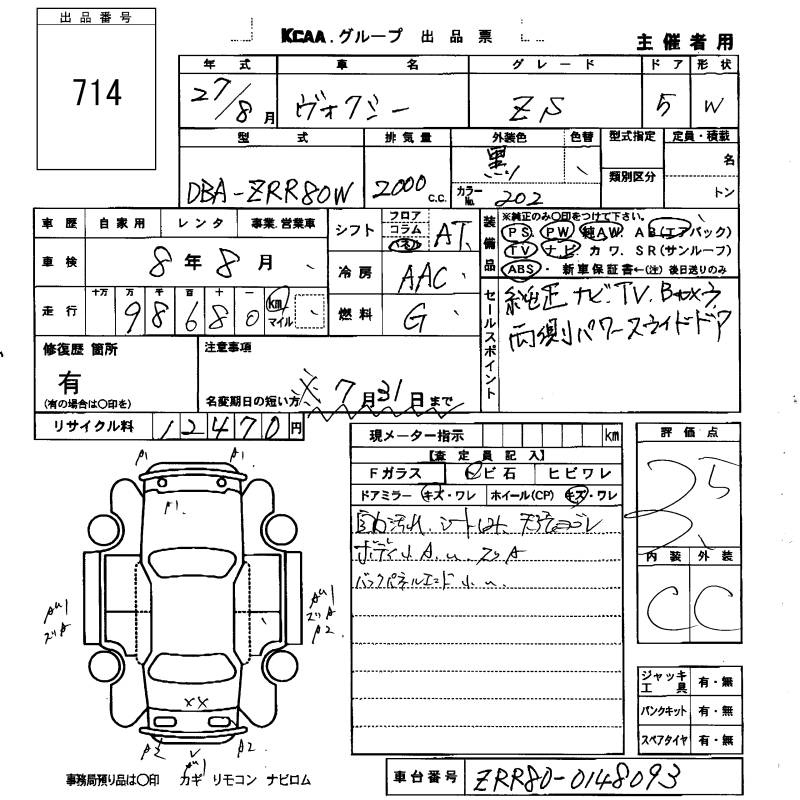 出品番号
714
KCAA.グループ 出品票
主催者用
年式 車名 グレード ドア 形状
27/8月 ヴォクシー ZS 5 W
型式 排気量 外装色 色替 型式指定 定員・積載
DBA-ZRR80W 2000 c.c. 黒 名
カラーNo. 202 類別区分 トン
車歴 自家用 レンタ 事業.営業車
シフト フロア コラム AT
装備品
※純正のみ〇印をつけて下さい。
PS PW 純AW. AB(エアバック)
TV ナビ カワ. SR(サンルーフ)
ABS・ 新車保証書←(注)後日送りのみ
車検 8年8月
冷房 AAC
走行 十万 万 千 百 十 km マイル
98680
燃料 G
セールスポイント
純正ナビ.TV.Bカメラ
両側パワースライドドア
修復歴 箇所
有
(有の場合は〇印を)
注意事項
名変期日の短い方 ※7月31日まで
リサイクル料 12470円
現メーター指示 km
【査定員記入】
Fガラス トビ石 ヒビワレ
ドアミラー キズ・ワレ ホイール(CP) キズ・ワレ
ボディ小A.u.スリA
バックパネルエンド小u.
評価点
3.5
内装 外装
C C
A1 A1
A1
AU1
スリA
AU1
スリA
A2
XX
A2 A2
ジャッキ工具 有・無
パンクキット 有・無
スペアタイヤ 有・無
事務局預り品は〇印 カギ リモコン ナビロム
車台番号 ZRR80-0148093